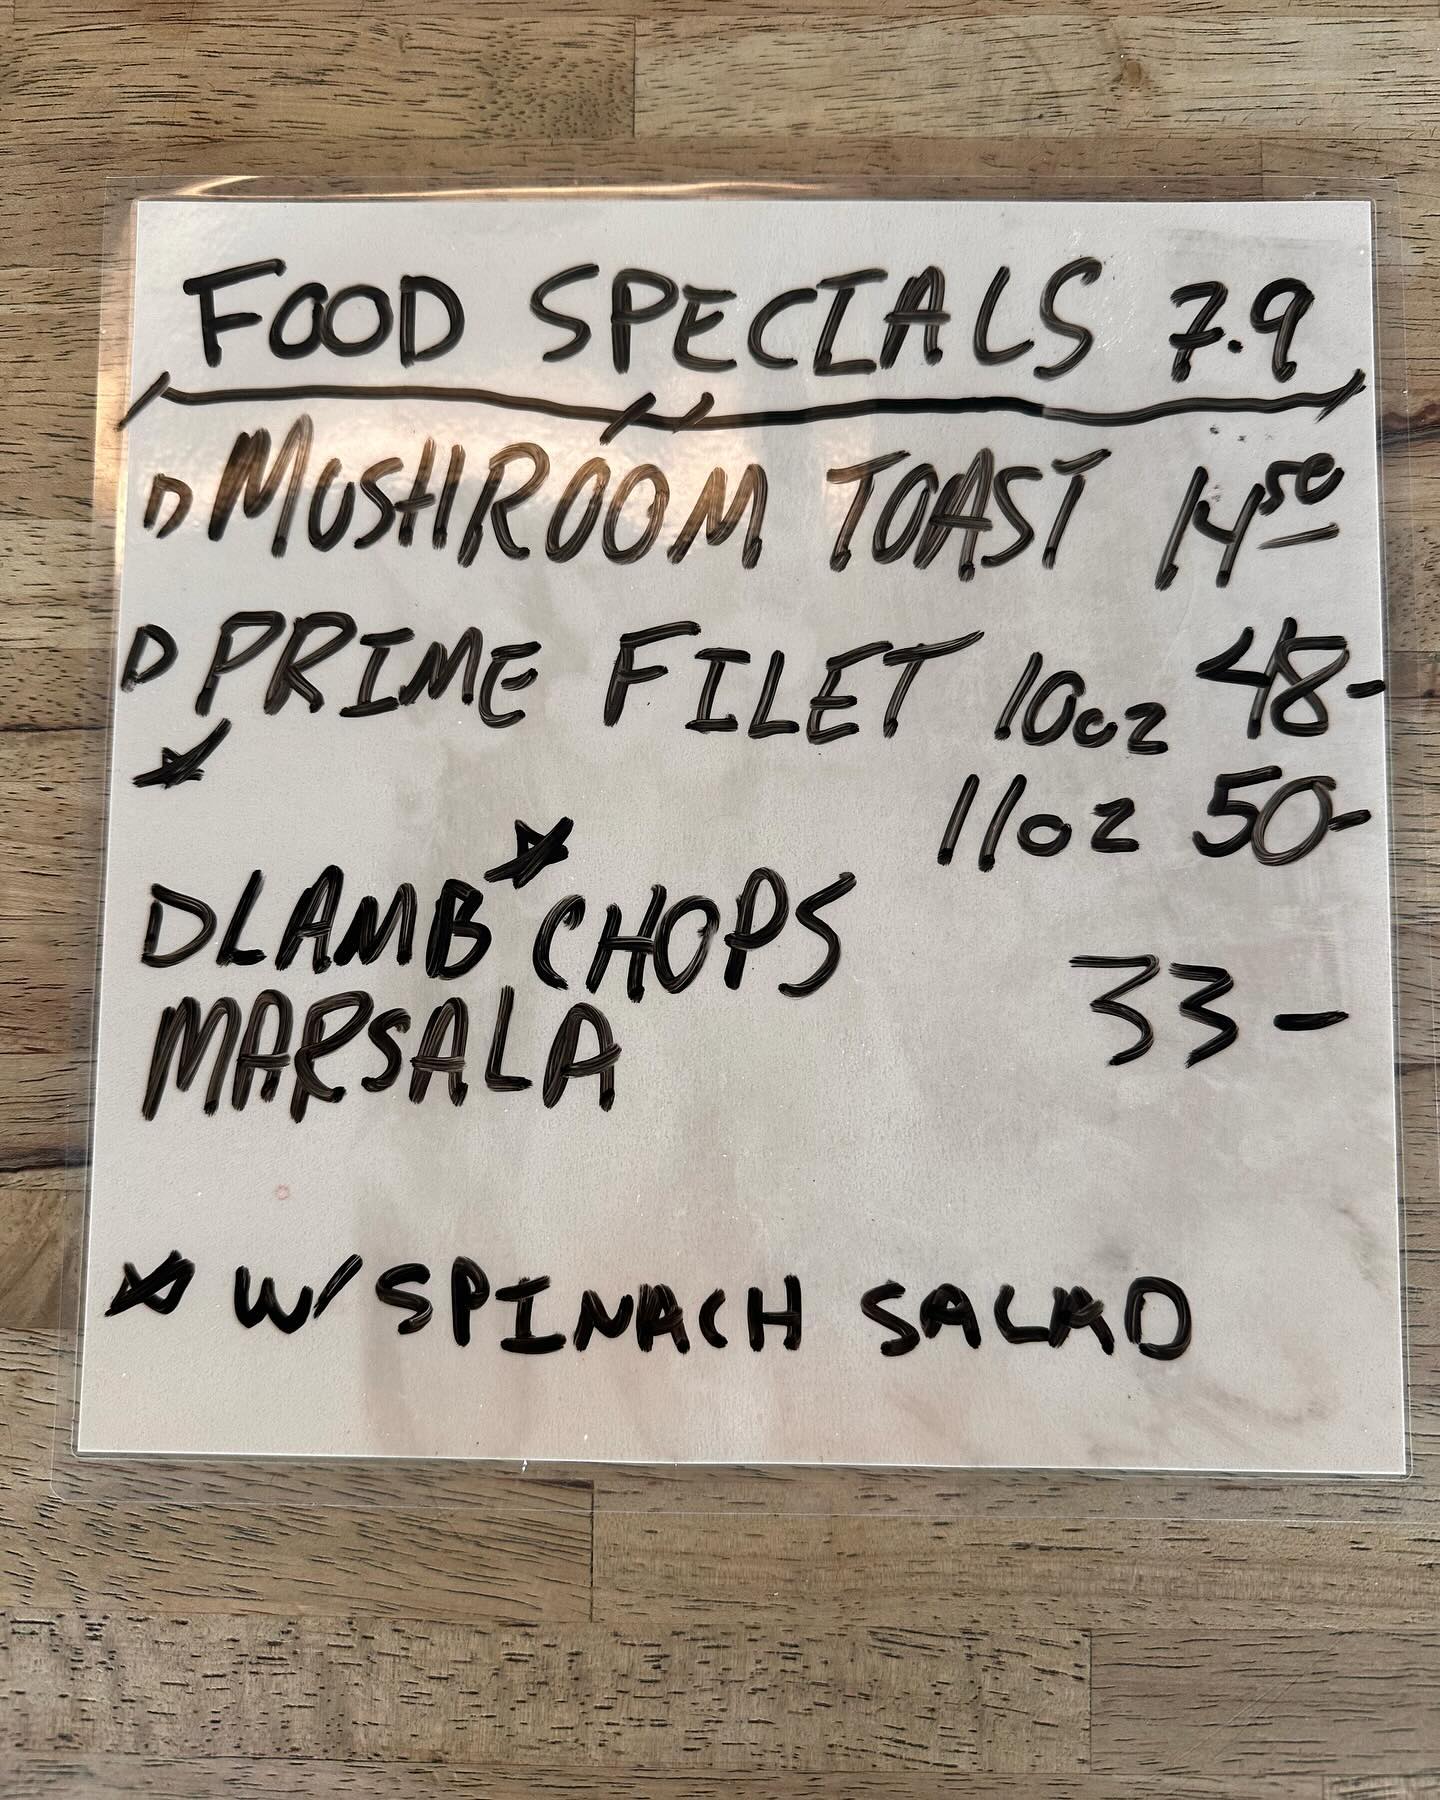 FOOD SPECIALS 7.9
▷ MUSHROOM TOAST 14.50
▷ PRIME FILET 10oz 48-
☆ 11oz 50-
▷ LAMB ☆ CHOPS
MARSALA 33-
☆ W/ SPINACH SALAD